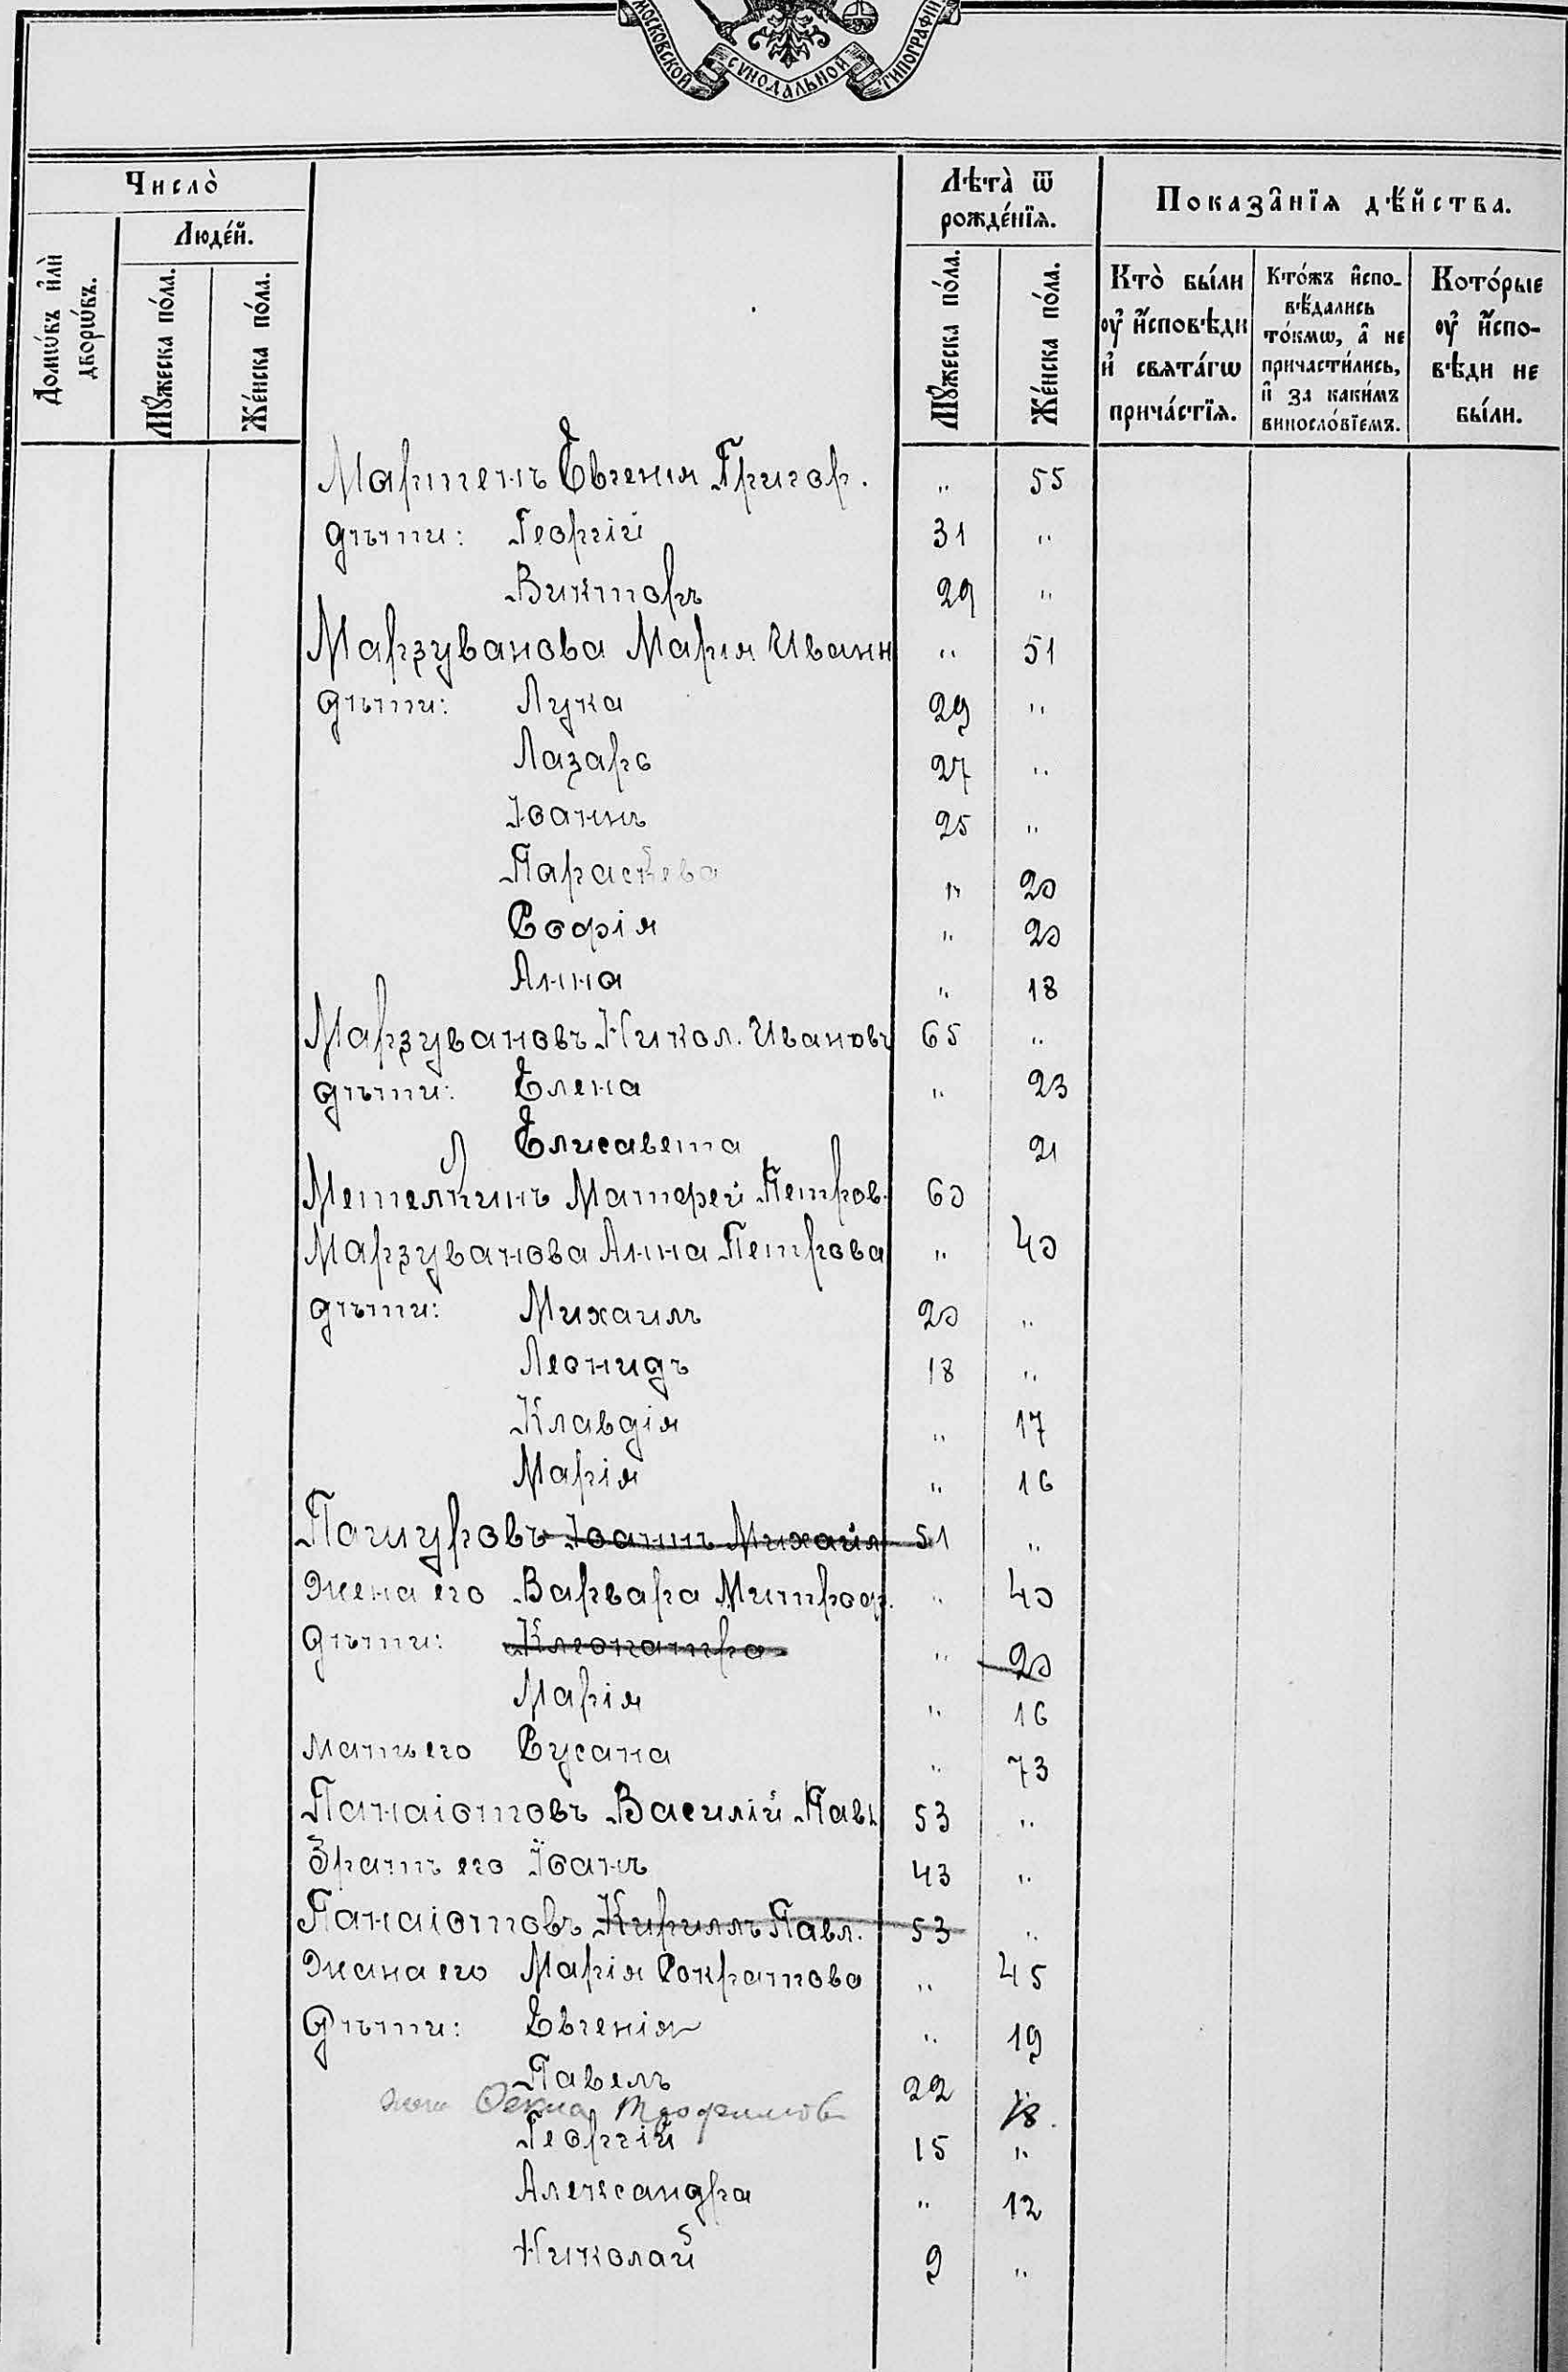 МОСКОВСКОЙ СУНОДАЛЬНОЙ ТИПОГРАФІИ
Число̀
Домѡ́въ и҆лѝ дворѡ́въ.
Люде́й.
Мꙋ́жеска по́ла.
Же́нска по́ла.
Лѣта̀ ѿ рожде́нїѧ.
Мꙋ́жеска по́ла.
Же́нска по́ла.
Показа̑нїѧ дѣ́йства.
Кто̀ бы́ли ᲂу҆ и҆́сповѣди и҆ свѧта́гѡ прича́стїѧ.
Кто́жъ и҆спо-вѣ́дались то́кмѡ, а҆ не причасти́лись, и҆ за каки́мъ виносло́вїемъ.
Кото́рые ᲂу҆ и҆́спо-вѣди не бы́ли.
Мартенъ Евгенія Григор. „ 55
дѣти: Георгій 31 „
Викторъ 29 „
Марзуванова Марія Иванн „ 51
дѣти: Лука 29 „
Лазарь 27 „
Іоаннъ 25 „
Параскева „ 20
Софія „ 20
Анна „ 18
Марзувановъ Никол. Ивановъ 65 „
дѣти: Елена „ 23
Елисавета 21
Метелкинъ Матфей Петров. 60
Марзуванова Анна Петрова „ 40
дѣти: Михаилъ 20 „
Леонидъ 18 „
Клавдія „ 17
Марія „ 16
Почуровъ Іоаннъ Михайл 51 „
Жена его Варвара Митроф. „ 40
дѣти: Клеопатра „ 20
Марія „ 16
мать его Сусана „ 73
Панаіотовъ Василій Павл 53 „
Братъ его Іоанъ 43 „
Панаіотовъ Кириллъ Павл. 53 „
Жена его Марія Сократова „ 45
Дѣти: Евгенія „ 19
Павелъ 22 „
жена Трофимов 18.
Георгій 15 „
Александра „ 12
Николай 9 „